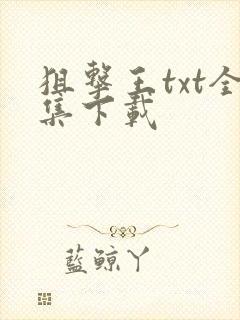 狙擊王txt全
集下載
藍鯨丫